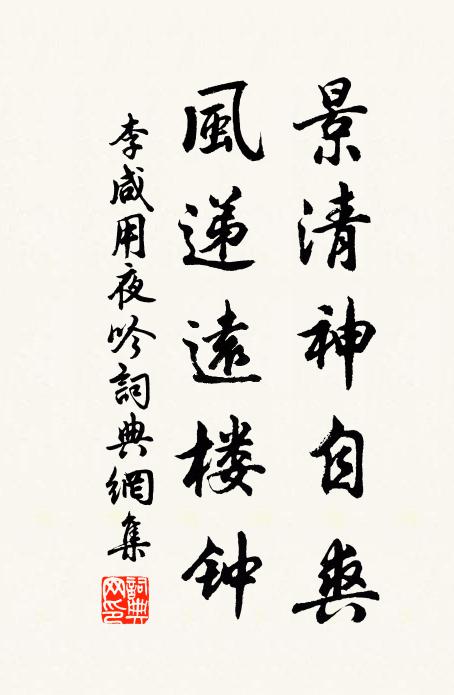 景清神自爽
風递遠楼钟
李咸用夜吟詞典網集
詞典網印